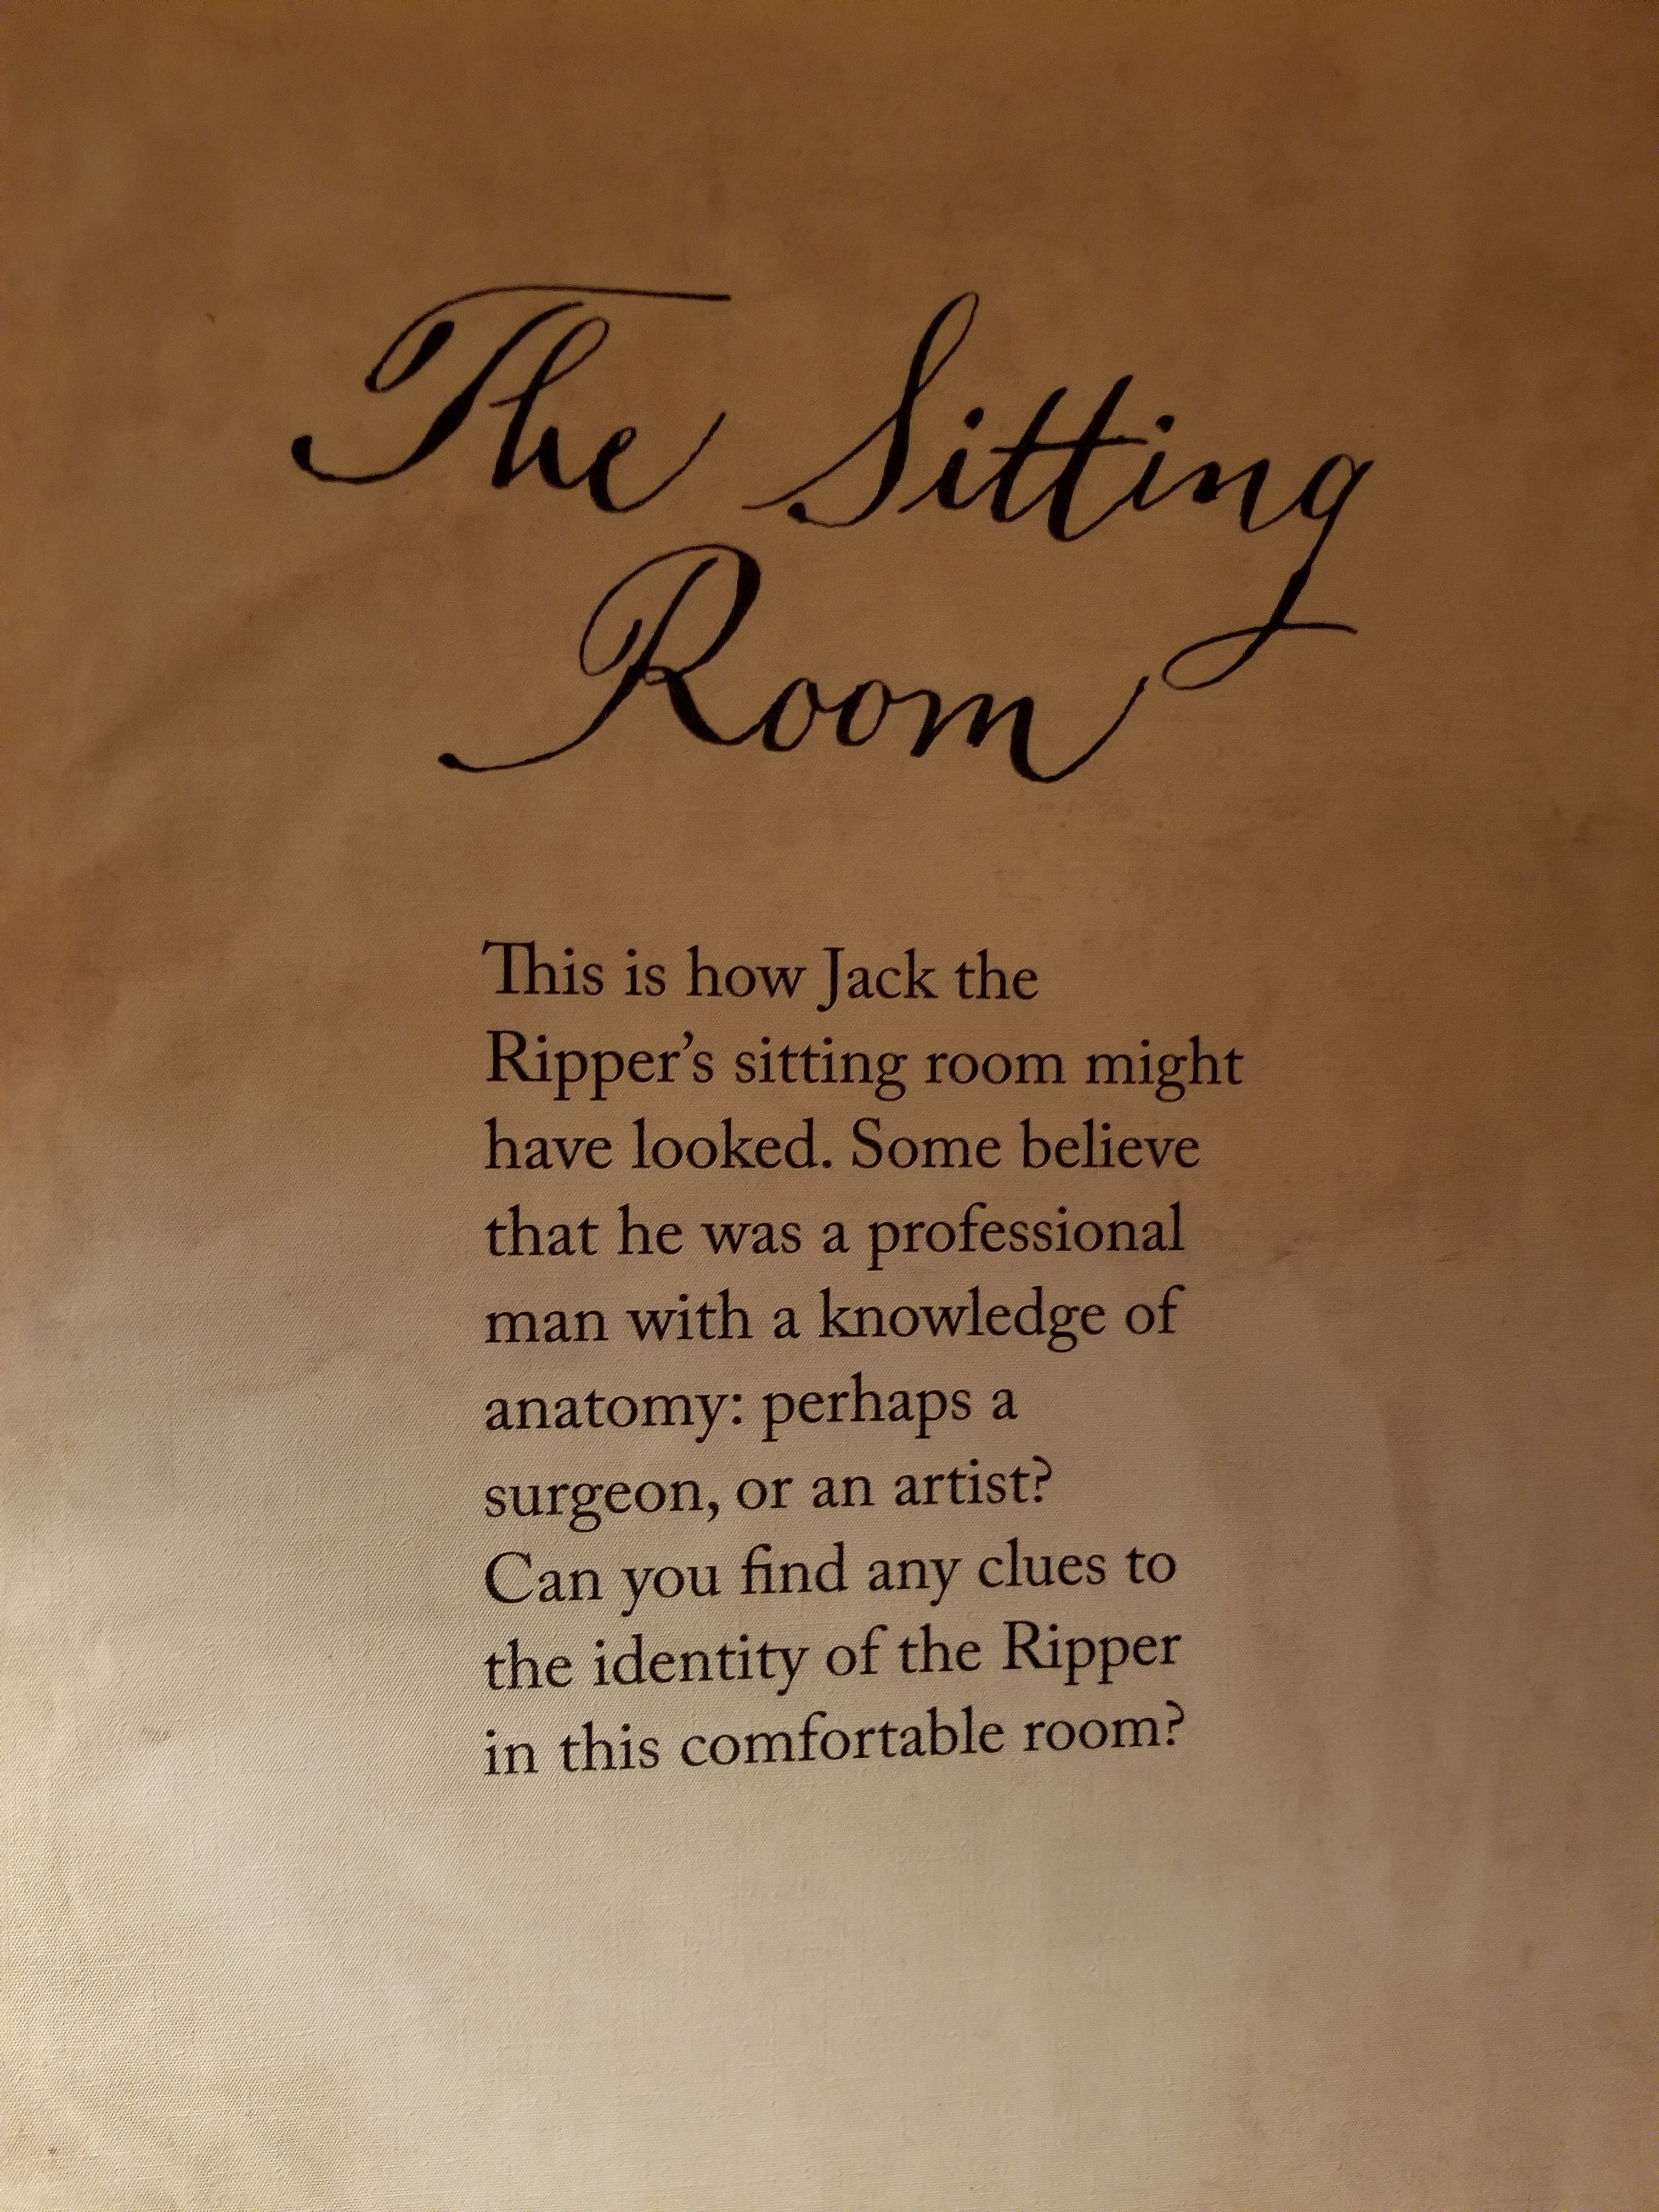 The Sitting
Room
This is how Jack the
Ripper’s sitting room might
have looked. Some believe
that he was a professional
man with a knowledge of
anatomy: perhaps a
surgeon, or an artist?
Can you find any clues to
the identity of the Ripper
in this comfortable room?